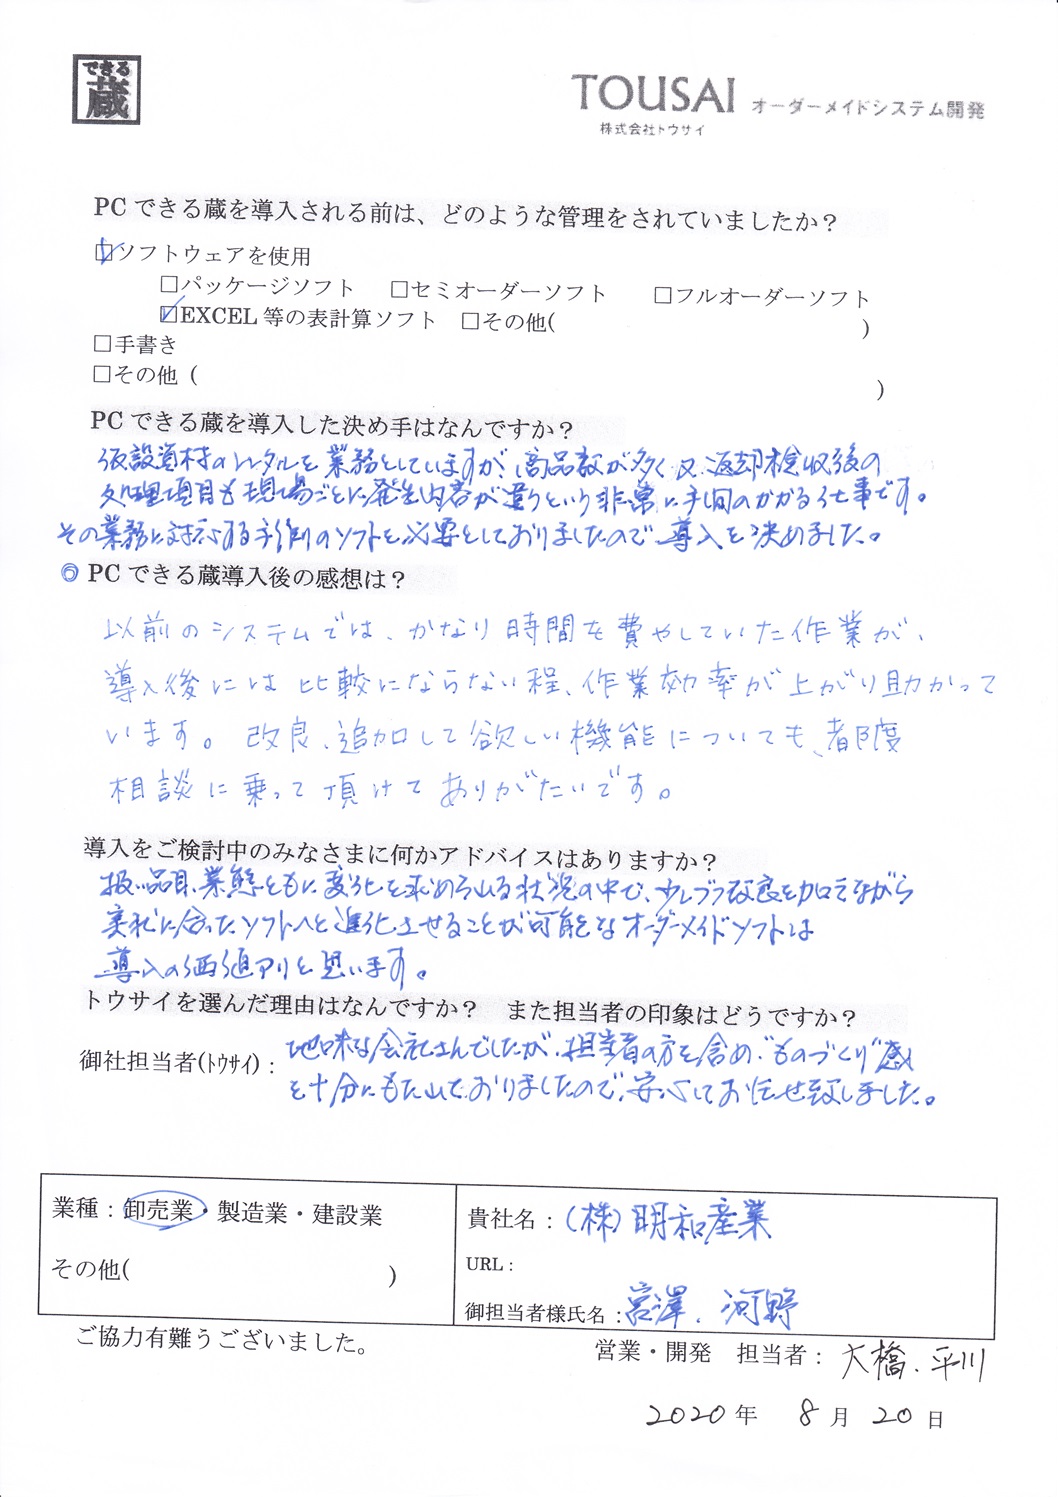 できる
蔵
TOUSAI オーダーメイドシステム開発
株式会社トウサイ
PCできる蔵を導入される前は、どのような管理をされていましたか?
☑ソフトウェアを使用
□パッケージソフト □セミオーダーソフト □フルオーダーソフト
☑EXCEL等の表計算ソフト □その他( )
□手書き
□その他 ( )
PCできる蔵を導入した決め手はなんですか?
仮設資材のレンタルを業務としていますが、商品数が多く又、返却検収後の
処理項目も現場ごとに発生内容が違うという非常に手間のかかる仕事です。
その業務に対応する手作りのソフトを必要としておりましたので導入を決めました。
◎ PCできる蔵導入後の感想は?
以前のシステムでは、かなり時間を費やしていた作業が、
導入後には比較にならない程、作業効率が上がり助かって
います。改良、追加して欲しい機能についても、都度
相談に乗って頂けてありがたいです。
導入をご検討中のみなさまに何かアドバイスはありますか?
扱い品目、業態ともに変化を求められる状況の中で、少しづつ改良を加えながら
実状に合ったソフトへと進化させることが可能なオーダーメイドソフトは
導入の価値アリと思います。
トウサイを選んだ理由はなんですか? また担当者の印象はどうですか?
御社担当者(トウサイ): 地味な会社さんでしたが、担当者の方を含め、“ものづくり”感
を十分にもたれておりましたので、安心してお任せ致しました。
業種:卸売業・製造業・建設業
その他( )
貴社名:(株)明和産業
URL:
御担当者様氏名:宮澤、河野
ご協力有難うございました。
営業・開発 担当者: 大橋、平川
2020年 8月 20日